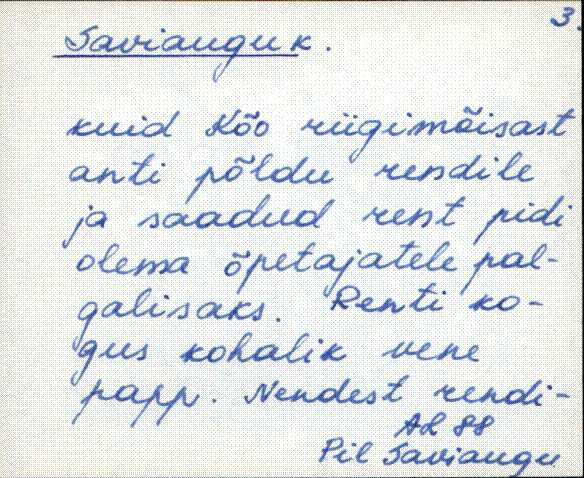 3.
Saviaugu k.
kuid Kõo riigimõisast
anti põldu rendile
ja saadud rent pidi
olema õpetajatele pal-
galisaks. Renti ko-
gus kohalik vene
papp. Nendest rendi-
AL 88
Pil Saviaugu